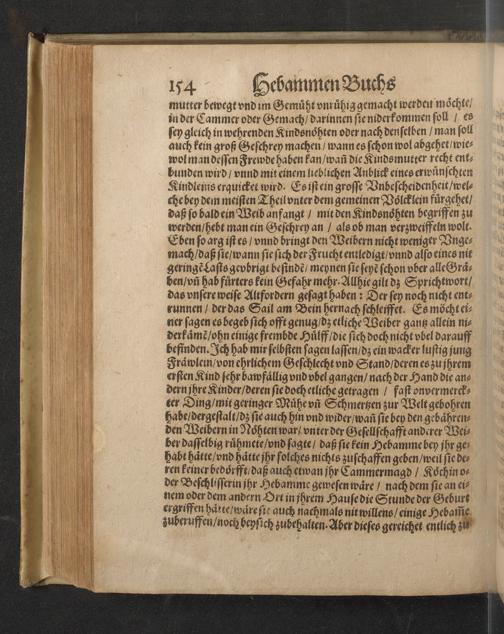 154 Hebammen Buchs
mutter bewegt vnd im Gemüht vnrühig gemacht werden möchte/
in der Cammer oder Gemach/ darinnen sie niderkommen soll / es
sey gleich in wehrenden Kindsnöhten oder nach denselben / man soll
auch kein groß Geschrey machen/ wann es schon wol abgehet/ wie-
wol man dessen Frewde haben kan/ wañ die Kindsmutter recht ent-
bunden wird/ vnnd mit einem lieblichen Anblick eines erwünschten
Kindleins erquicket wird. Es ist ein grosse Vnbescheidenheit/ wel-
che bey dem meisten Theil vnter dem gemeinen Völcklein fürgehet/
daß so bald ein Weib anfangt / mit den Kindsnöhten begriffen zu
werden/ hebt man ein Geschrey an / als ob man verzweiffeln wolt.
Eben so arg ist es / vnnd bringt den Weibern nicht weniger Vnge-
mach/ daß sie/ wann sie sich der Frucht entledigt/ vnnd also eines nit
geringẽ Lasts gewbrigt befindẽ/ meynen sie seyẽ schon vber alle Grä-
ben/ vñ hab fürters kein Gefahr mehr. Allhie gilt dz Sprichtwort/
das vnsere weise Altfordern gesagt haben : Der sey noch nicht ent-
runnen / der das Sail am Bein hernach schleiffet. Es möcht ei-
ner sagen es begeb sich offt genug/ dz etliche Weiber gantz allein ni-
derkämẽ/ ohn einige frembde Hülff/ die sich doch nicht vbel darauff
befinden. Jch hab mir selbsten sagen lassen/ dz ein wacker lustig jung
Fräwlein/ von ehrlichem Geschlecht vnd Stand/ deren es zu jhrem
ersten Kind sehr bawfällig vnd vbel gangen/ nach der Hand die an-
dern jhre Kinder/ deren sie doch etliche getragen / fast onvermerck-
ter Ding/ mit geringer Mühe vñ Schmertzen zur Welt gebohren
habe/ dergestalt/ dz sie auch hin vnd wider/ wañ sie bey den gebähren-
den Weibern in Nöhten war/ vnter der Gesellschafft anderer Wei-
ber dasselbig rühmete/ vnd sagte / daß sie kein Hebamme bey jhr ge-
habt hätte/ vnd hätte jhr solches nichts zuschaffen geben/ weil sie de-
ren keiner bedörfft/ daß auch etwan jhr Cammermagd / Köchin o-
der Beschlisserin jhr Hebamme gewesen wäre / nach dem sie an ei-
nem oder dem andern Ort in jhrem Hause die Stunde der Geburt
ergriffen hätte/ wäre sie auch nachmals nit willens/ einige Hebam̃e
zuberuffen/ noch bey sich zubehalten. Aber dieses gereichet entlich zu